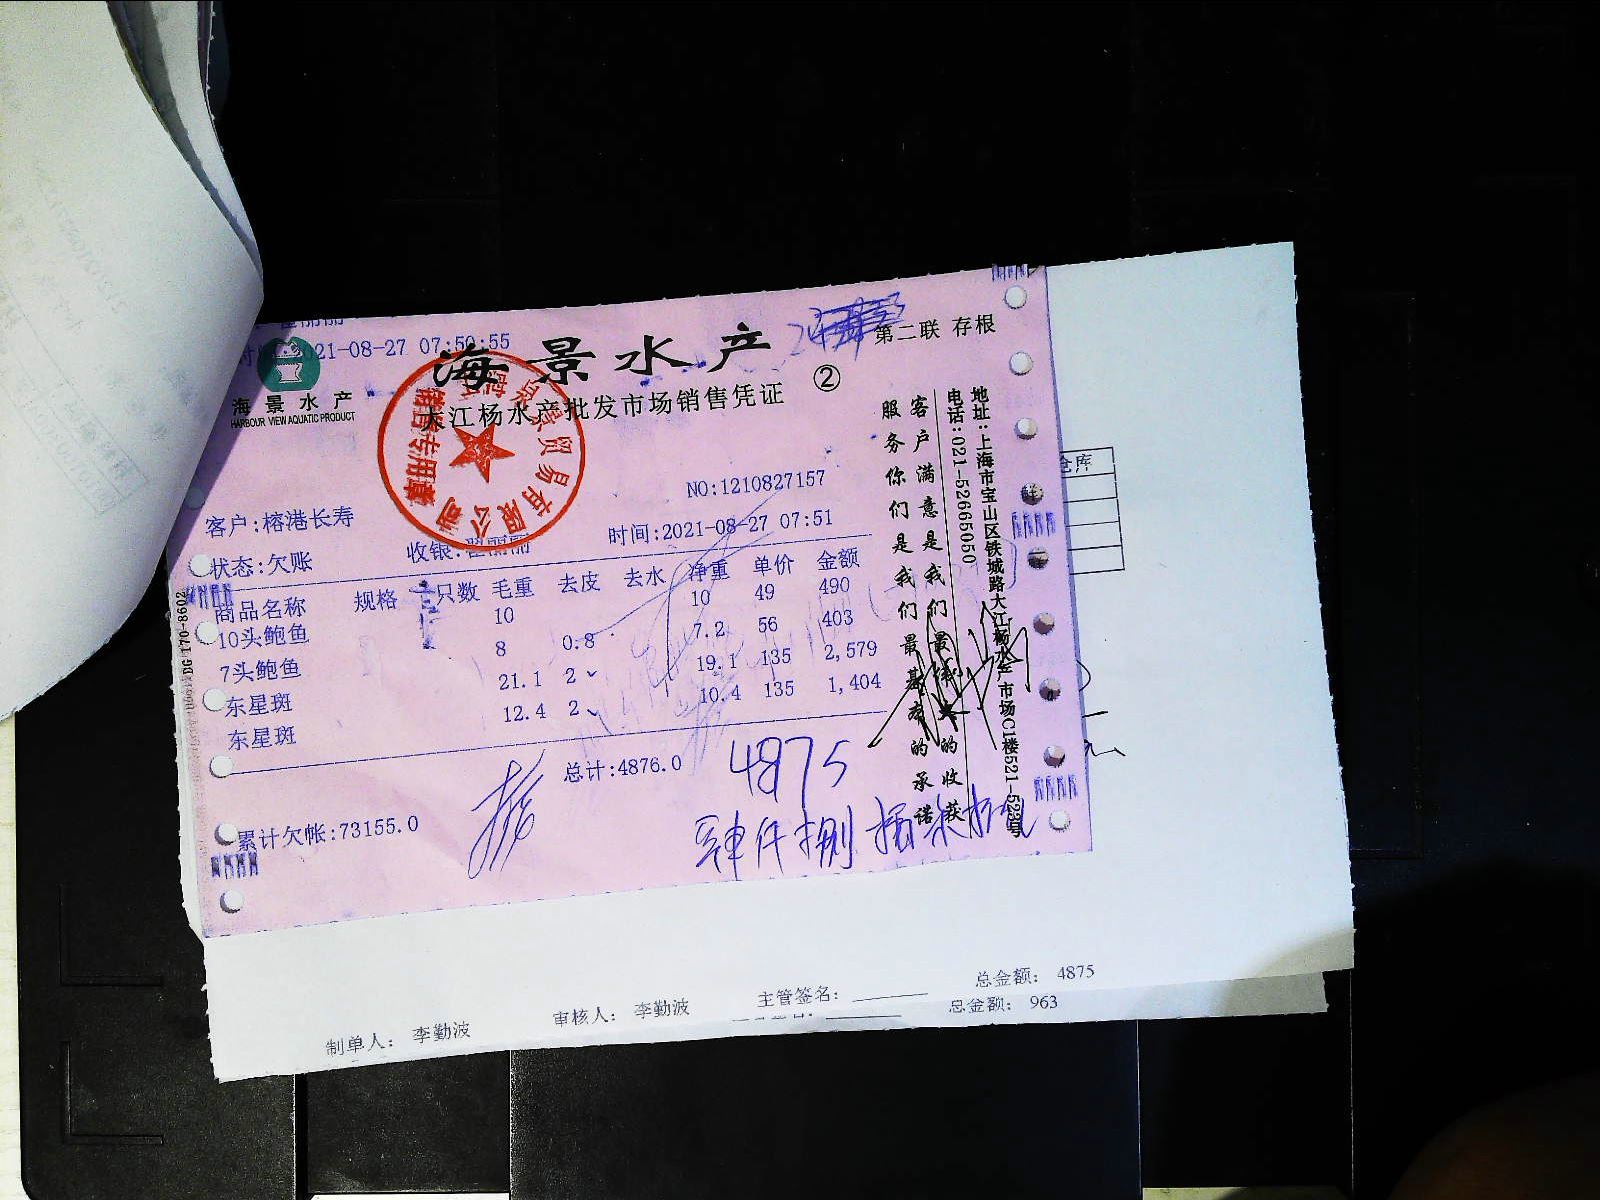 2021-08-27 07:50:55
海景水产
第二联 存根
②
海景水产
HARBOUR VIEW AQUATIC PRODUCT
大江杨水产批发市场销售凭证
销售专用章
贸易有限公司
NO:1210827157
客户:榕港长寿
时间:2021-08-27 07:51
状态:欠账
收银:翟丽丽
商品名称 规格 只数 毛重 去皮 去水 净重 单价 金额
10头鲍鱼 10 10 49 490
7头鲍鱼 8 0.8 7.2 56 403
东星斑 21.1 2 19.1 135 2,579
东星斑 12.4 2 10.4 135 1,404
总计:4876.0
4875
累计欠帐:73155.0
客户满意是我们最
服务你们是我们最基本的承诺
地址:上海市宝山区铁城路大江杨水产市场C1楼521-523号
电话:021-52665050
170-8602
仓库
总金额: 4875
主管签名:
审核人: 李勤波
制单人: 李勤波
总金额: 963